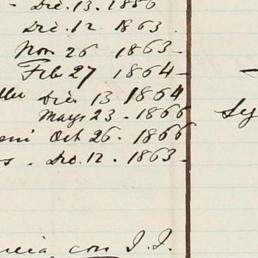 - Dic. 13. 1886
Dic. 12 1863.
Nov 26 1863-
Feb 27 1864-
Dic. 13 1864
Mayo 23 - 1866
Oct 26. 1866
s. Dic. 12. - 1863.
con J. J.